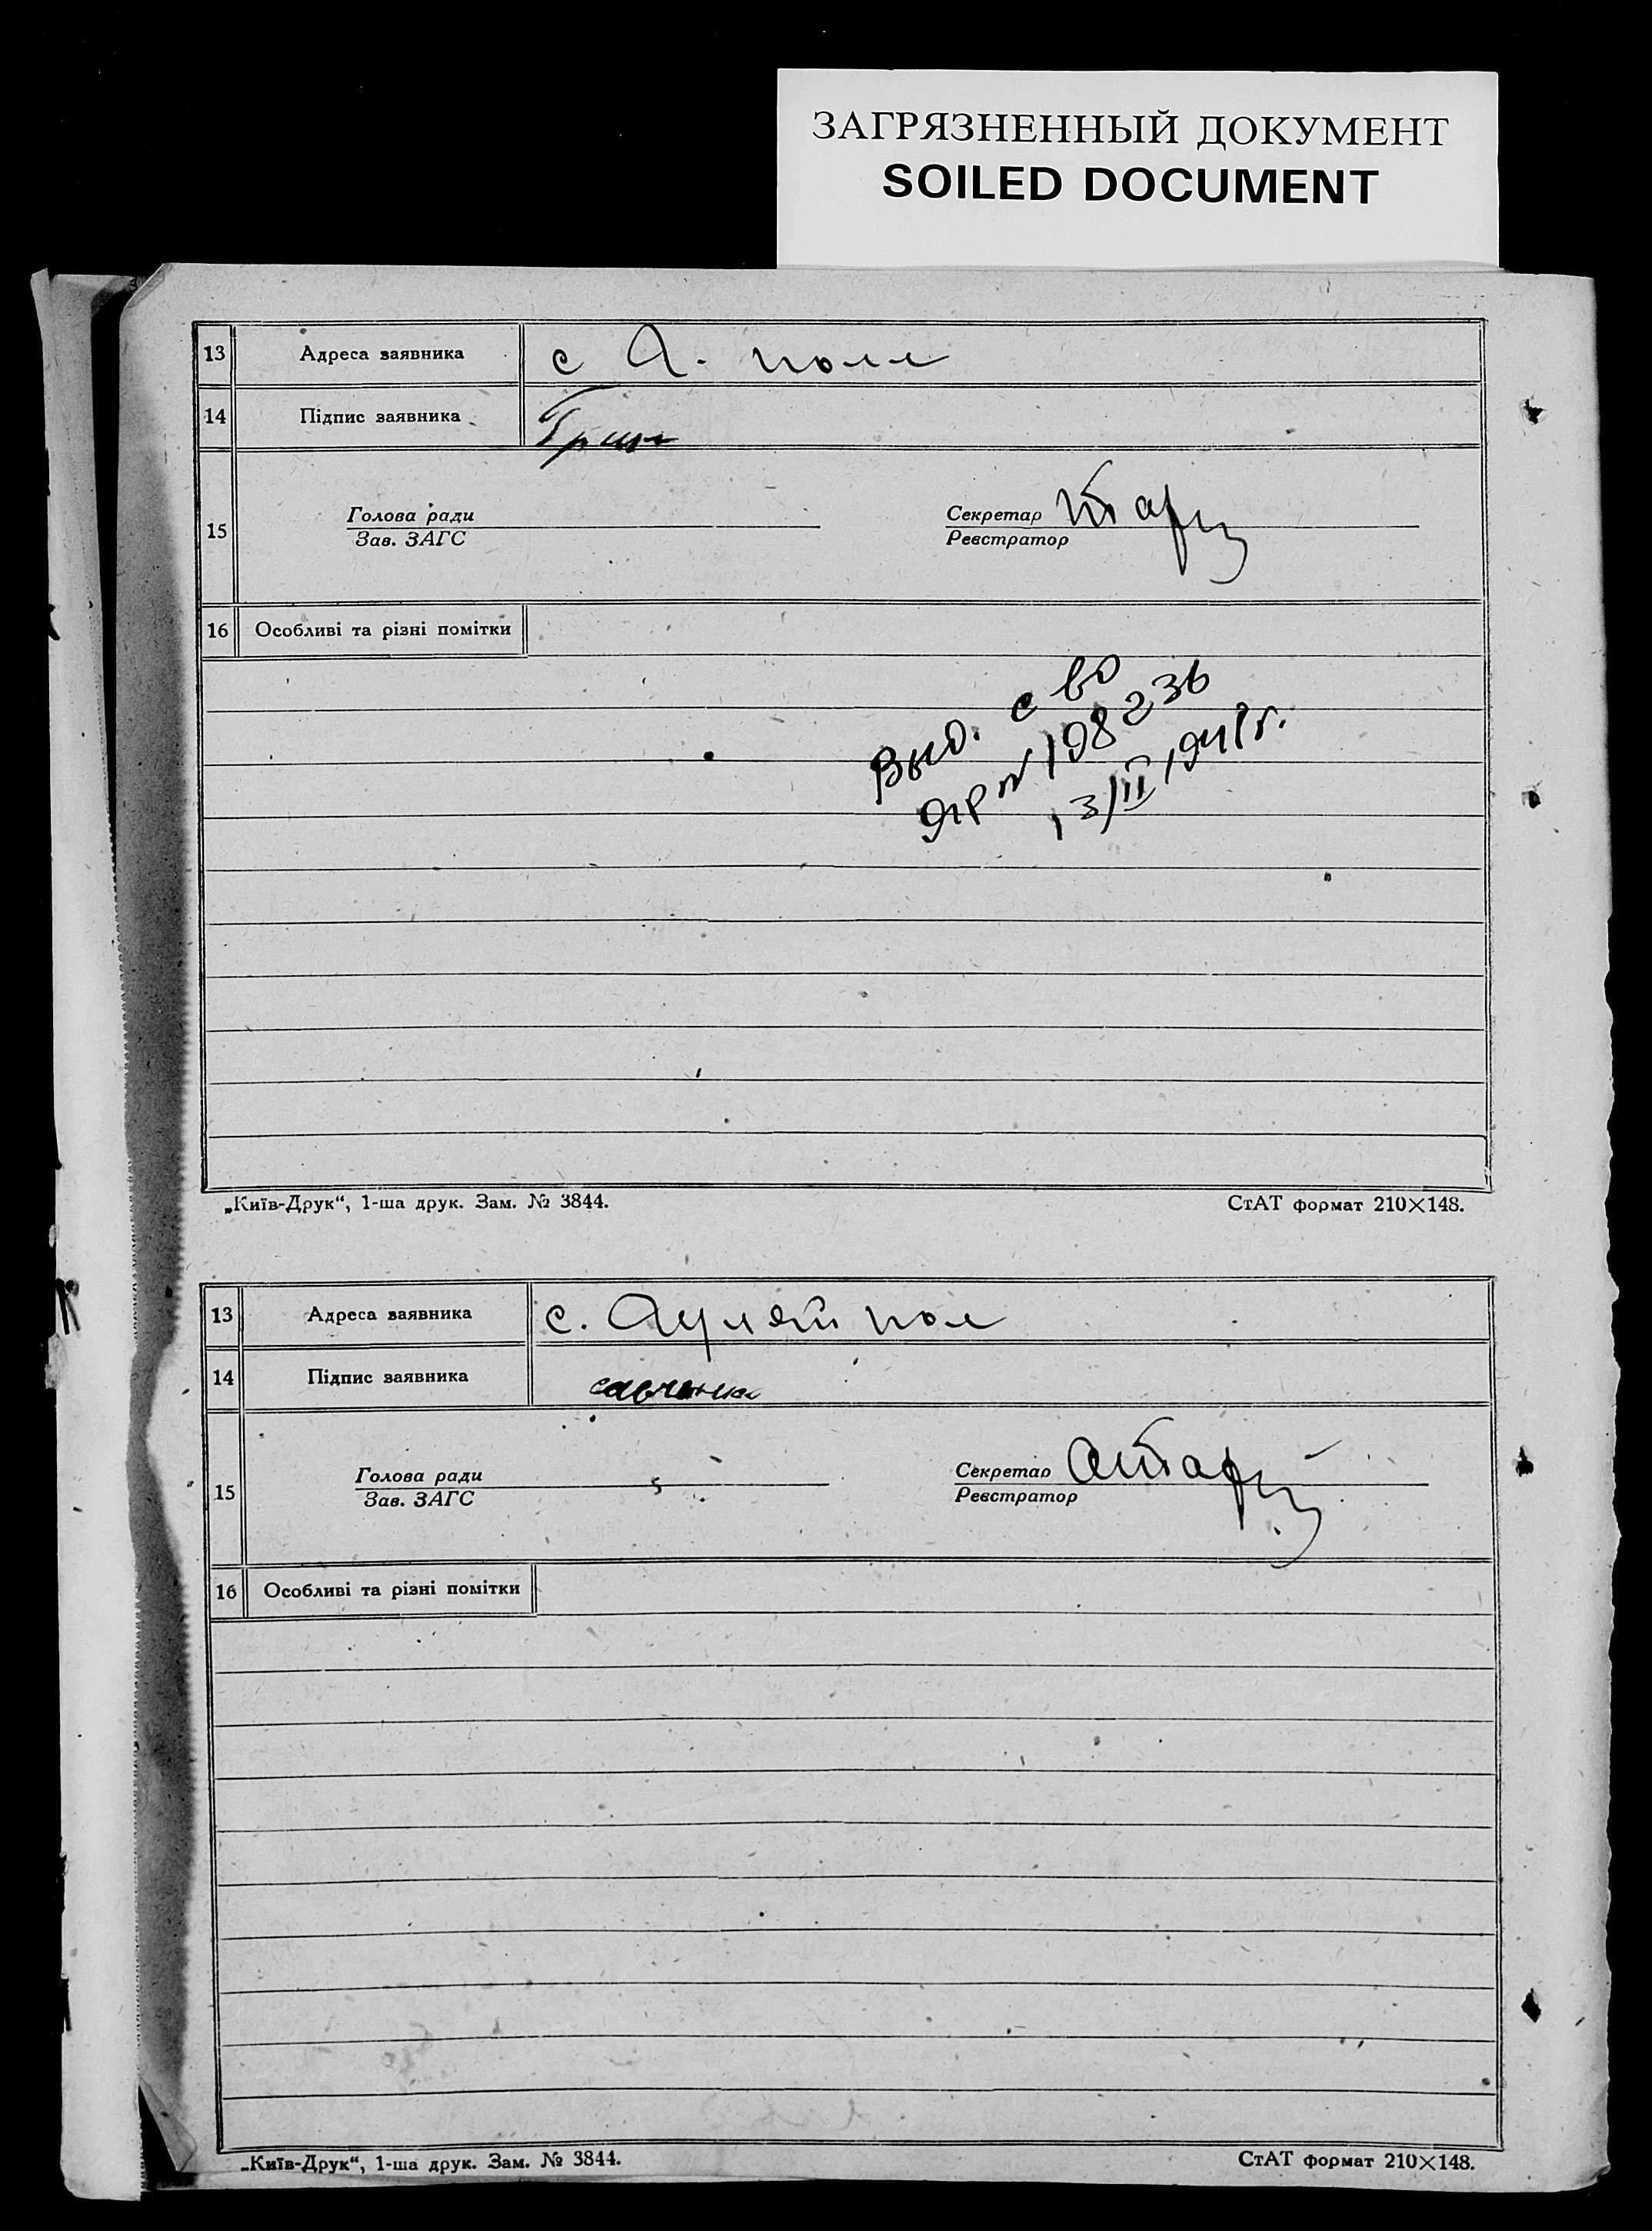 ЗАГРЯЗНЕННЫЙ ДОКУМЕНТ
SOILED DOCUMENT
13 Адреса заявника с А. поле
14 Підпис заявника
15 Голова ради
Зав. ЗАГС
Секретар
Реєстратор
16 Особливі та різні помітки
Выд. с во
№ 198236
3/III 1948 г.
„Київ-Друк“, 1-ша друк. Зам. № 3844. СтАТ формат 210×148.
13 Адреса заявника с.
14 Підпис заявника
15 Голова ради
Зав. ЗАГС
Секретар
Реєстратор
16 Особливі та різні помітки
„Київ-Друк“, 1-ша друк. Зам. № 3844. СтАТ формат 210×148.